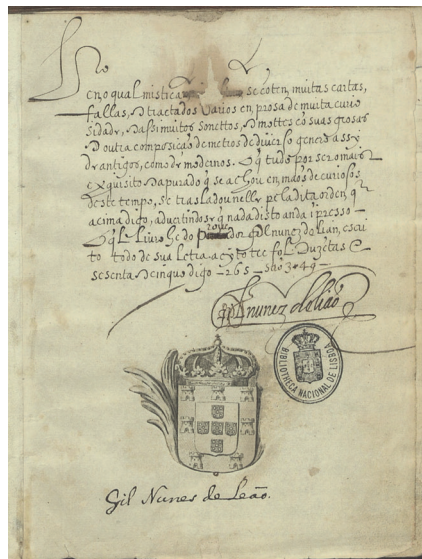 No
en o qual mistica se cotem, muitas cartas,
fallas, tractados varios em prosa de muita curio
sidade, assi muitos sonettos, mottes cõ suas grosas
outra composição de metros de diuerso genero assy
antigos, como modernos. O q̃ tudo por ser o mais
exquisito apurado q̃ se achou em mãos de curiosos
deste tempo, se trasladou nelle pela dita ordem, q̃
acima digo, aduertindo q̃ nada disto anda ĩpresso
O q̃l Liuro he do dor gil nunez de lião, escri
to todo de sua letra a qto te fol. Duzẽtas e
sesenta cinquo digo - 265 - são 349 -
gil nunez de lião
BIBLIOTHECA NACIONAL DE LISBOA
Gil Nunes de Leão.